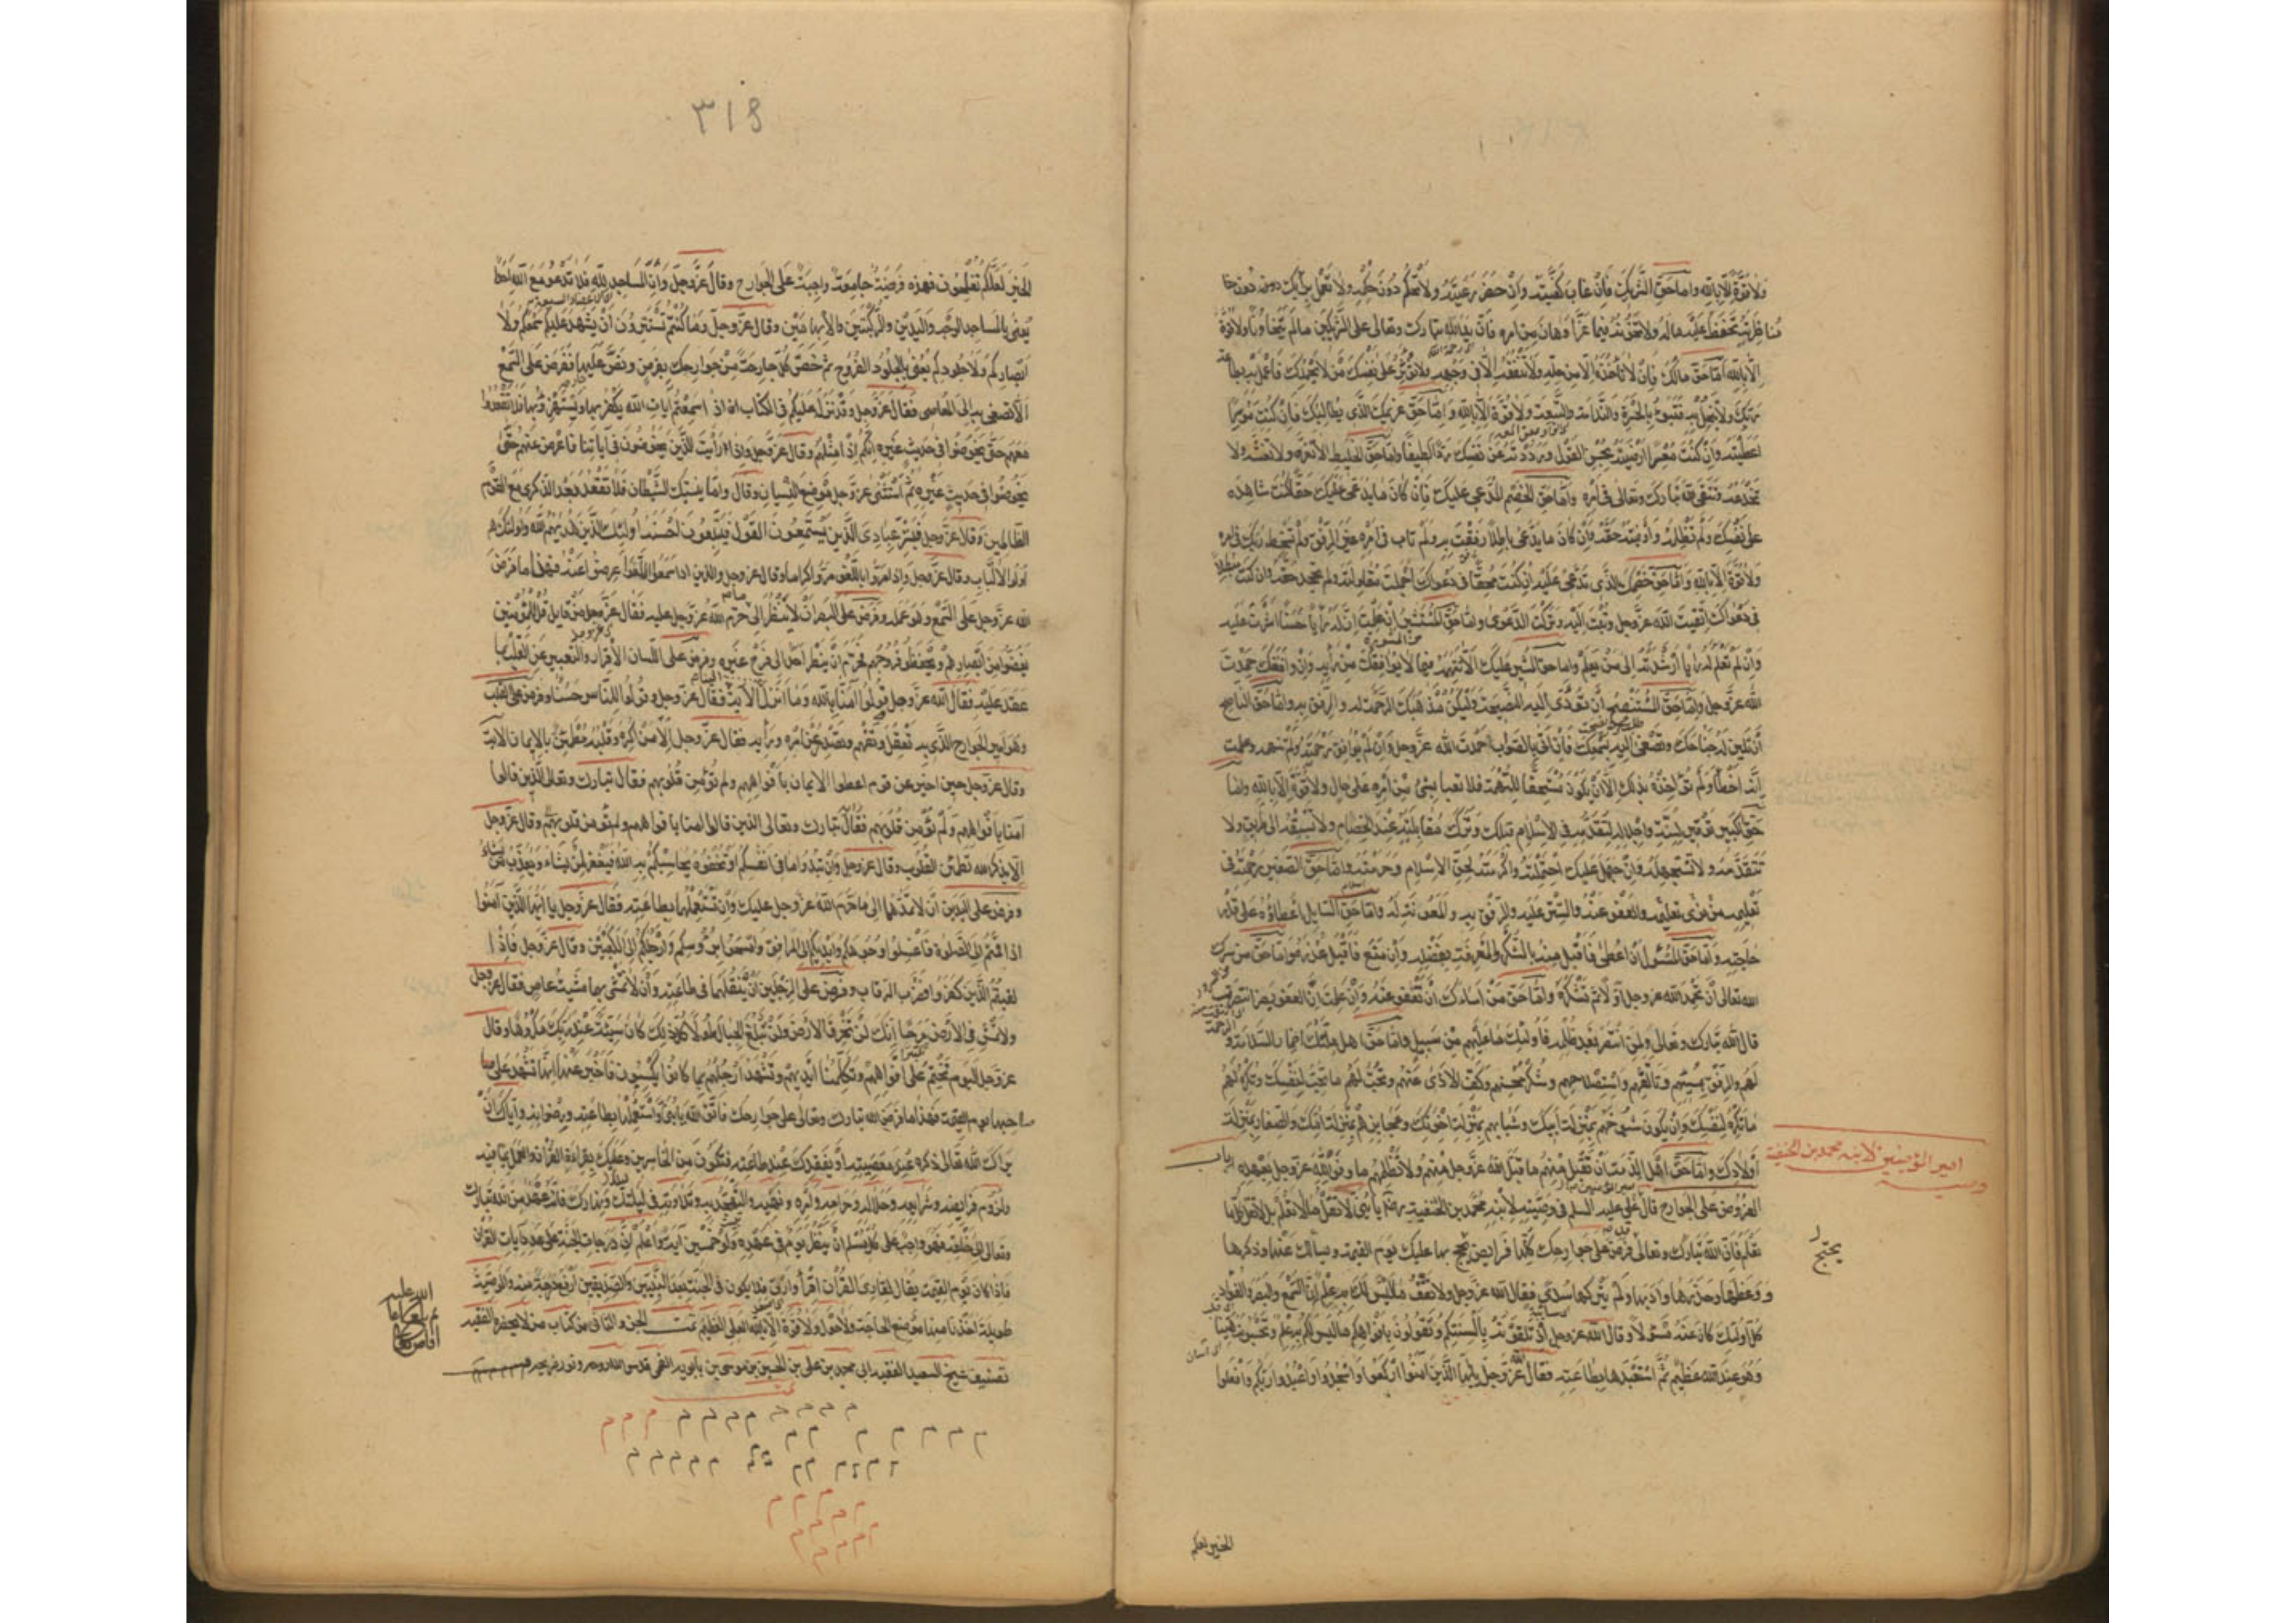 ولا قوة الا بالله واما حق الشريك فان غاب كفيته وان حضر رعيته ولا تحكم دون حكمه ولا تعمل برأيك دون
مناظرته تحفظ عليه ماله ولا تخونه فيما عز او هان من امره فان يد الله تبارك وتعالى على الشريكين ما لم يتخاونا ولا قوة
الا بالله واما حق مالك فان لا تأخذه الا من حله ولا تنفقه الا في وجهه ولا تؤثر على نفسك من لا يحمدك فاعمل به بطاعة
ربك ولا تبخل به فتبوء بالحسرة والندامة والتبعة ولا قوة الا بالله واما حق غريمك الذي يطالبك فان كنت موسرا
اعطيته وان كنت معسرا ارضيته بحسن القول ورددته عن نفسك ردا لطيفا واما حق الخليط ان لا تغره ولا تغشه ولا
تخدعه وتتقي الله تبارك وتعالى في امره واما حق الخصم المدعي عليك فان كان ما يدعي عليك حقا كنت شاهده
على نفسك ولم تظلمه واوفيته حقه وان كان ما يدعي باطلا رفقت به ولم تأت في امره غير الرفق ولم تسخط ربك في امره
ولا قوة الا بالله واما حق خصمك الذي تدعي عليه ان كنت محقا في دعواك اجملت مقاولته ولم تجحد حقه وان كنت مبطلا
في دعواك اتقيت الله عز وجل وتبت اليه وتركت الدعوى واما حق المستشير ان علمت ان له رأيا حسنا اشرت عليه
وان لم تعلم له رأيا ارشدته الى من يعلم واما حق المشير عليك ان لا تتهمه فيما لا يوافقك من رأيه وان وافقك حمدت
الله عز وجل واما حق المستنصح ان تؤدي اليه النصيحة وليكن مذهبك الرحمة له والرفق به واما حق الناصح
ان تلين له جناحك وتصغي اليه بسمعك فان اتى بالصواب حمدت الله عز وجل وان لم يوافق رحمته ولم تتهمه وعلمت
انه اخطأ ولم تؤاخذه بذلك الا ان يكون مستحقا للتهمة فلا تعبأ بشئ من امره على حال ولا قوة الا بالله واما
حق الكبير توقيره لسنه واجلاله لتقدمه في الاسلام قبلك وترك مقابلته عند الخصام ولا تسبقه الى طريق ولا
تتقدمه ولا تستجهله وان جهل عليك احتملته واكرمته لحق الاسلام وحرمته واما حق الصغير رحمته في
تعليمه والعفو عنه والستر عليه والرفق به والمعونة له واما حق السايل اعطاؤه على قدر
حاجته واما حق المسئول ان اعطى فاقبل منه بالشكر والمعرفة بفضله وان منع فاقبل عذره واما حق من سرك
لله تعالى ان تحمد الله عز وجل اولا ثم تشكره واما حق من اساءك ان تعفو عنه وان علمت ان العفو يضر انتصرت
قال الله تبارك وتعالى ولمن انتصر بعد ظلمه فاولئك ما عليهم من سبيل واما حق اهل ملتك اضمار السلامة و
لهم والرفق بمسيئهم وتألفهم واستصلاحهم وشكر محسنهم وكف الاذى عنهم وتحب لهم ما تحب لنفسك وتكره لهم
ما تكره لنفسك وان يكون شيوخهم بمنزلة ابيك وشبابهم بمنزلة اخوتك وعجايزهم بمنزلة امك والصغار بمنزلة
اولادك واما حق اهل الذمة ان تقبل منهم ما قبل الله عز وجل منهم ولا تظلمهم ما وفوا لله عز وجل بعهده باب
الفروض على الجوارح قال علي عليه السلم في وصيته لابنه محمد بن الحنفية رضي الله عنه يا بني لا تقل ما لا تعلم بل لا تقل كلما
تعلم فان الله تبارك وتعالى فرض على جوارحك كلها فرايض يحتج بها عليك يوم القيمة ويسألك عنها وذكرها
ووعظها وحذرها وادبها ولم يتركها سدى فقال الله عز وجل ولا تقف ما ليس لك به علم ان السمع والبصر والفؤاد
كل اولئك كان عنه مسئولا وقال الله عز وجل اذ تلقونه بالسنتكم وتقولون بافواهكم ما ليس لكم به علم وتحسبونه هينا
وهو عند الله عظيم ثم استعبدها بطاعته فقال عز وجل يا ايها الذين آمنوا اركعوا واسجدوا واعبدوا ربكم وافعلوا
وصية
امير المؤمنين لابنه محمد بن الحنفية
يحتج
الخير لعلكم
٣١٤
الخير لعلكم تفلحون فهذه فريضة جامعة واجبة على الجوارح وقال عز وجل وان المساجد لله فلا تدعوا مع الله احدا
يعني بالمساجد الوجه واليدين والركبتين والابهامين وقال عز وجل وما كنتم تستترون ان يشهد عليكم سمعكم ولا
ابصاركم ولا جلودكم يعني بالجلود الفروج ثم خص كل جارحة من جوارحك بفرض ونص عليها ففرض على السمع
ان لا تصغي به الى المعاصي فقال عز وجل وقد نزل عليكم في الكتاب ان اذا سمعتم آيات الله يكفر بها ويستهزء بها فلا تقعدوا
معهم حتى يخوضوا في حديث غيره انكم اذا مثلهم وقال عز وجل واذا رأيت الذين يخوضون في آياتنا فاعرض عنهم حتى
يخوضوا في حديث غيره ثم استثنى عز وجل موضع النسيان وقال واما ينسينك الشيطان فلا تقعد بعد الذكرى مع القوم
الظالمين وقال عز وجل فبشر عبادي الذين يستمعون القول فيتبعون احسنه اولئك الذين هديهم الله واولئك هم
اولوا الالباب وقال عز وجل واذا مروا باللغو مروا كراما وقال عز وجل والذين اذا سمعوا اللغو اعرضوا عنه فهذا ما فرض
الله عز وجل على السمع وهو عمله وفرض على البصر ان لا ينظر الى ما حرم الله عز وجل عليه فقال عز وجل من قايل قل للمؤمنين
يغضوا من ابصارهم ويحفظوا فروجهم فحرم ان ينظر احد الى فرج غيره وفرض على اللسان الاقرار والتعبير عن القلب بما
عقد عليه فقال الله عز وجل قولوا آمنا بالله وما انزل الآية فقال عز وجل وقولوا للناس حسنا وفرض على القلب
وهو امير الجوارح الذي به تعقل وتفهم وتصدر عن امره ورأيه فقال عز وجل الا من اكره وقلبه مطمئن بالايمان الآية
وقال عز وجل حين اخبر عن قوم اعطوا الايمان بافواههم ولم تؤمن قلوبهم فقال تبارك وتعالى الذين قالوا
آمنا بافواههم ولم تؤمن قلوبهم فقال تبارك وتعالى الذين قالوا امنا بافواههم ولم تؤمن قلوبهم وقال عز وجل
الا بذكر الله تطمئن القلوب وقال عز وجل وان تبدوا ما في انفسكم او تخفوه يحاسبكم به الله فيغفر لمن يشاء ويعذب من يشاء
وفرض على اليدين ان لا تمدهما الى ما حرم الله عز وجل عليك وان تستعملهما بطاعته فقال عز وجل يا ايها الذين آمنوا
اذا قمتم الى الصلوة فاغسلوا وجوهكم وايديكم الى المرافق وامسحوا برؤسكم وارجلكم الى الكعبين وقال عز وجل فاذا
لقيتم الذين كفروا فضرب الرقاب وفرض على الرجلين ان تنقلهما في طاعته وان لا تمشي بهما مشية عاص فقال عز وجل
ولا تمش في الارض مرحا انك لن تخرق الارض ولن تبلغ الجبال طولا كل ذلك كان سيئة عند ربك مكروها وقال
عز وجل اليوم نختم على افواههم وتكلمنا ايديهم وتشهد ارجلهم بما كانوا يكسبون فاخبر عنها انها تشهد على
صاحبها يوم القيمة فهذا ما فرض الله تبارك وتعالى على جوارحك فاتق الله يا بني واستعملها بطاعته ورضوانه واياك ان
يراك الله تعالى ذكره عند معصيته او يفقدك عند طاعته فتكون من الخاسرين وعليك بقراءة القرآن والعمل بما فيه
ولزوم فرايضه وشرايعه وحلاله وحرامه وامره ونهيه والتهجد به وتلاوته في ليلك ونهارك فانه عهد من الله تبارك
وتعالى الى خلقه فهو واجب على كل مسلم ان ينظر كل يوم في عهده ولو خمسين آية واعلم ان درجات الجنة على عدد آيات القرآن
فاذا كان يوم القيمة يقال لقارئ القرآن اقرأ وارق فلا يكون في الجنة بعد النبيين والصديقين ارفع درجة منه والوصية
طويلة اخذنا منها موضع الحاجة ولا حول ولا قوة الا بالله العلي العظيم تمت الجزء الثاني من كتاب من لا يحضره الفقيه
تصنيف شيخ السعيد الفقيه ابي جعفر محمد بن علي بن الحسين بن موسى بن بابويه القمي قدس الله روحه ونور ضريحه
تمت